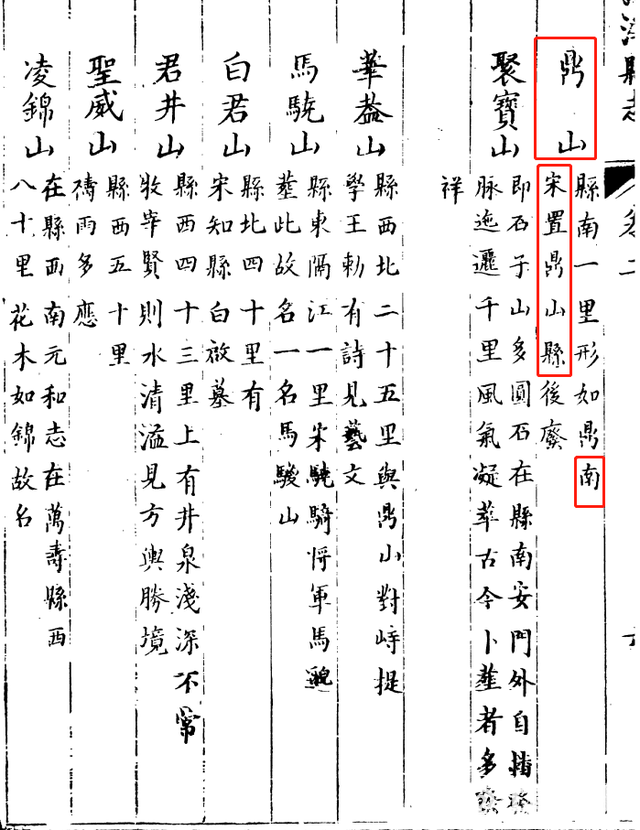 江津縣志
卷二
鼎山
縣南一里形如鼎南
宋置鼎山縣後廢
聚寶山
即石子山多圓石在縣南安門外自
脉迤邐千里風氣凝萃古今卜塟者多
祥
華蓋山
縣西北二十五里與鼎山對峙提
學王勅有詩見藝文
馬驍山
縣東隔江一里宋驍騎將軍馬
塟此故名一名馬騣山
白君山
縣北四十里有
宋知縣白啟墓
君井山
縣西四十三里上有井泉淺深不常
牧宰賢則水清溢見方輿勝境
聖威山
縣西五十里
禱雨多應
凌錦山
在縣西南元和志在萬壽縣西
八十里花木如錦故名